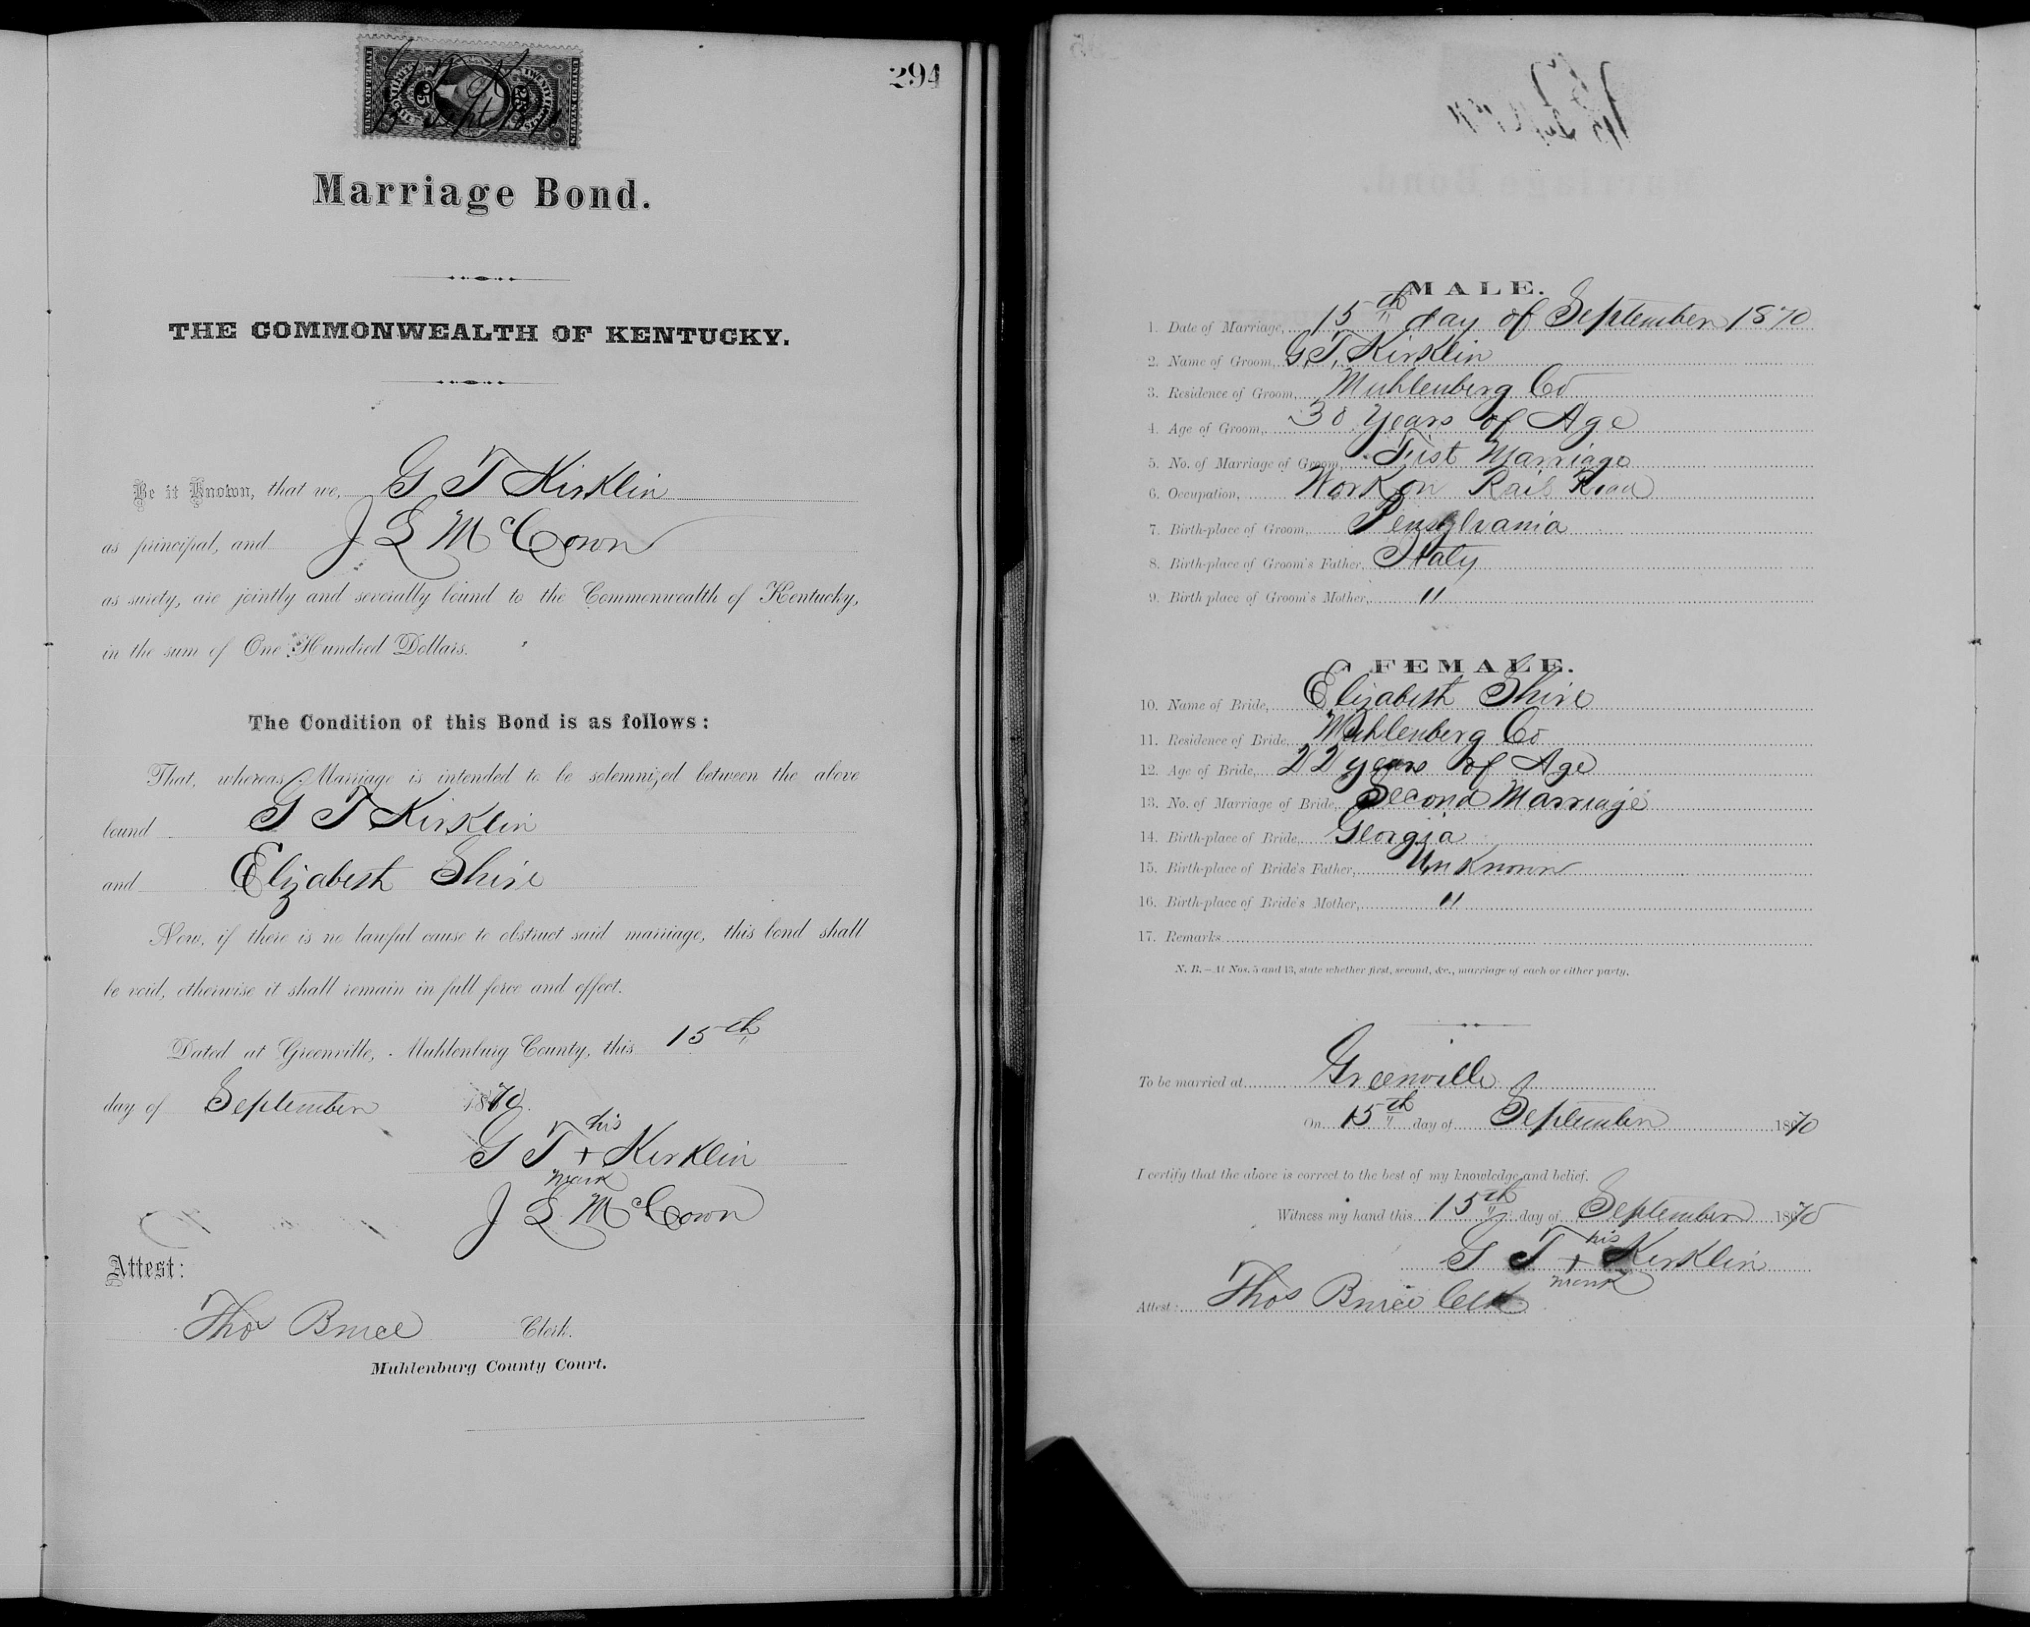 294
Marriage Bond.
THE COMMONWEALTH OF KENTUCKY.
Be it Known, that we, G T Kirklin
as principal, and J L McCown
as surety, are jointly and severally bound to the Commonwealth of Kentucky,
in the sum of One Hundred Dollars.
The Condition of this Bond is as follows:
That, whereas Marriage is intended to be solemnized between the above
bound G T Kirklin
and Elizabeth Shire
Now, if there is no lawful cause to obstruct said marriage, this bond shall
be void, otherwise it shall remain in full force and effect.
Dated at Greenville, Muhlenburg County, this 15th
day of September 1870.
G T his + mark Kirklin
J L McCown
Attest:
Thos Bruce Clerk.
Muhlenburg County Court.
MALE.
1. Date of Marriage, 15th day of September 1870
2. Name of Groom, G. T. Kirklin
3. Residence of Groom, Muhlenberg Co
4. Age of Groom, 30 years of Age
5. No. of Marriage of Groom, Fist Marriage
6. Occupation, Work on Rail Road
7. Birth-place of Groom, Pensylvania
8. Birth-place of Groom's Father, Italy
9. Birth place of Groom's Mother, "
FEMALE.
10. Name of Bride, Elizabeth Shire
11. Residence of Bride Muhlenberg Co
12. Age of Bride, 22 years of Age
13. No. of Marriage of Bride, Second Marriage
14. Birth-place of Bride, Georgia
15. Birth-place of Bride's Father, UnKnown
16. Birth-place of Bride's Mother, "
17. Remarks
N. B.—At Nos. 5 and 13, state whether first, second, &c., marriage of each or either party.
To be married at Greenville
On 15th day of September 1870
I certify that the above is correct to the best of my knowledge and belief.
Witness my hand this 15th day of September 1870
G T his + mark Kirklin
Attest: Thos Bruce Clk